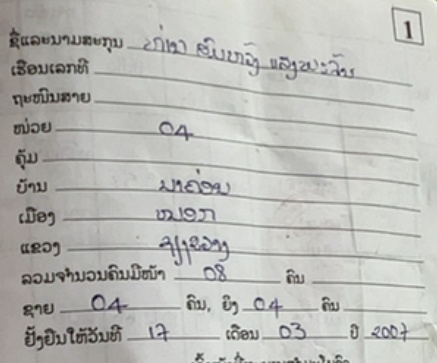 1
ຊື່ແລະນາມສະກຸນ ທ່ານ ສົມຫວັງ ແສງພະຈັນ
ເຮືອນເລກທີ
ຖະໜົນສາຍ
ໜ່ວຍ 04
ຄຸ້ມ
ບ້ານ ນາຄ່ອນ
ເມືອງ ໝອກ
ແຂວງ ຊຽງຂວາງ
ລວມຈຳນວນຄົນມີໜ້າ 08 ຄົນ
ຊາຍ 04 ຄົນ, ຍິງ 04 ຄົນ
ຢັ້ງຢືນໃຫ້ວັນທີ 17 ເດືອນ 03 ປີ 2007